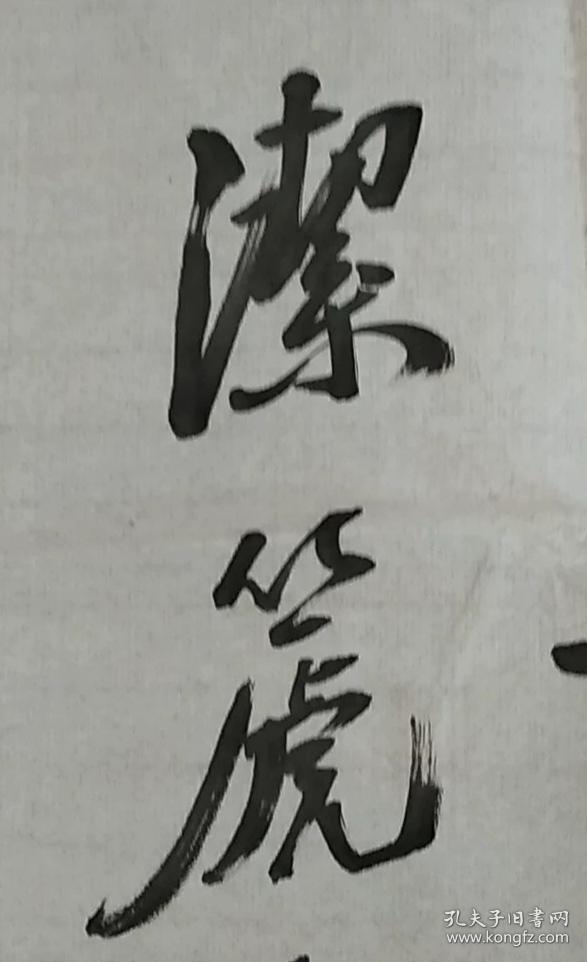 潔
箎
孔夫子旧書网
www.kongfz.com